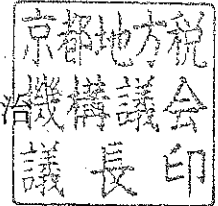 京都地方税
治機構議会
議長印